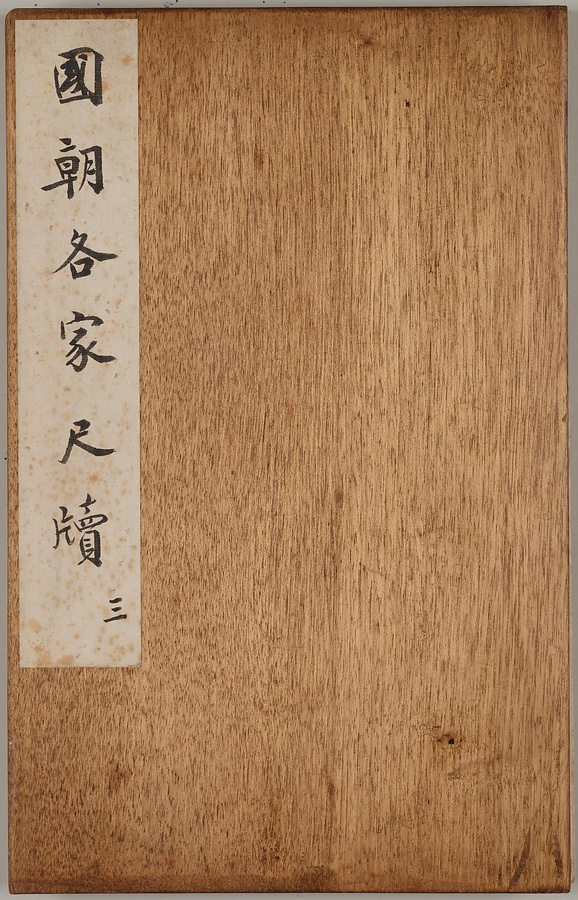 國朝各家尺牘
三